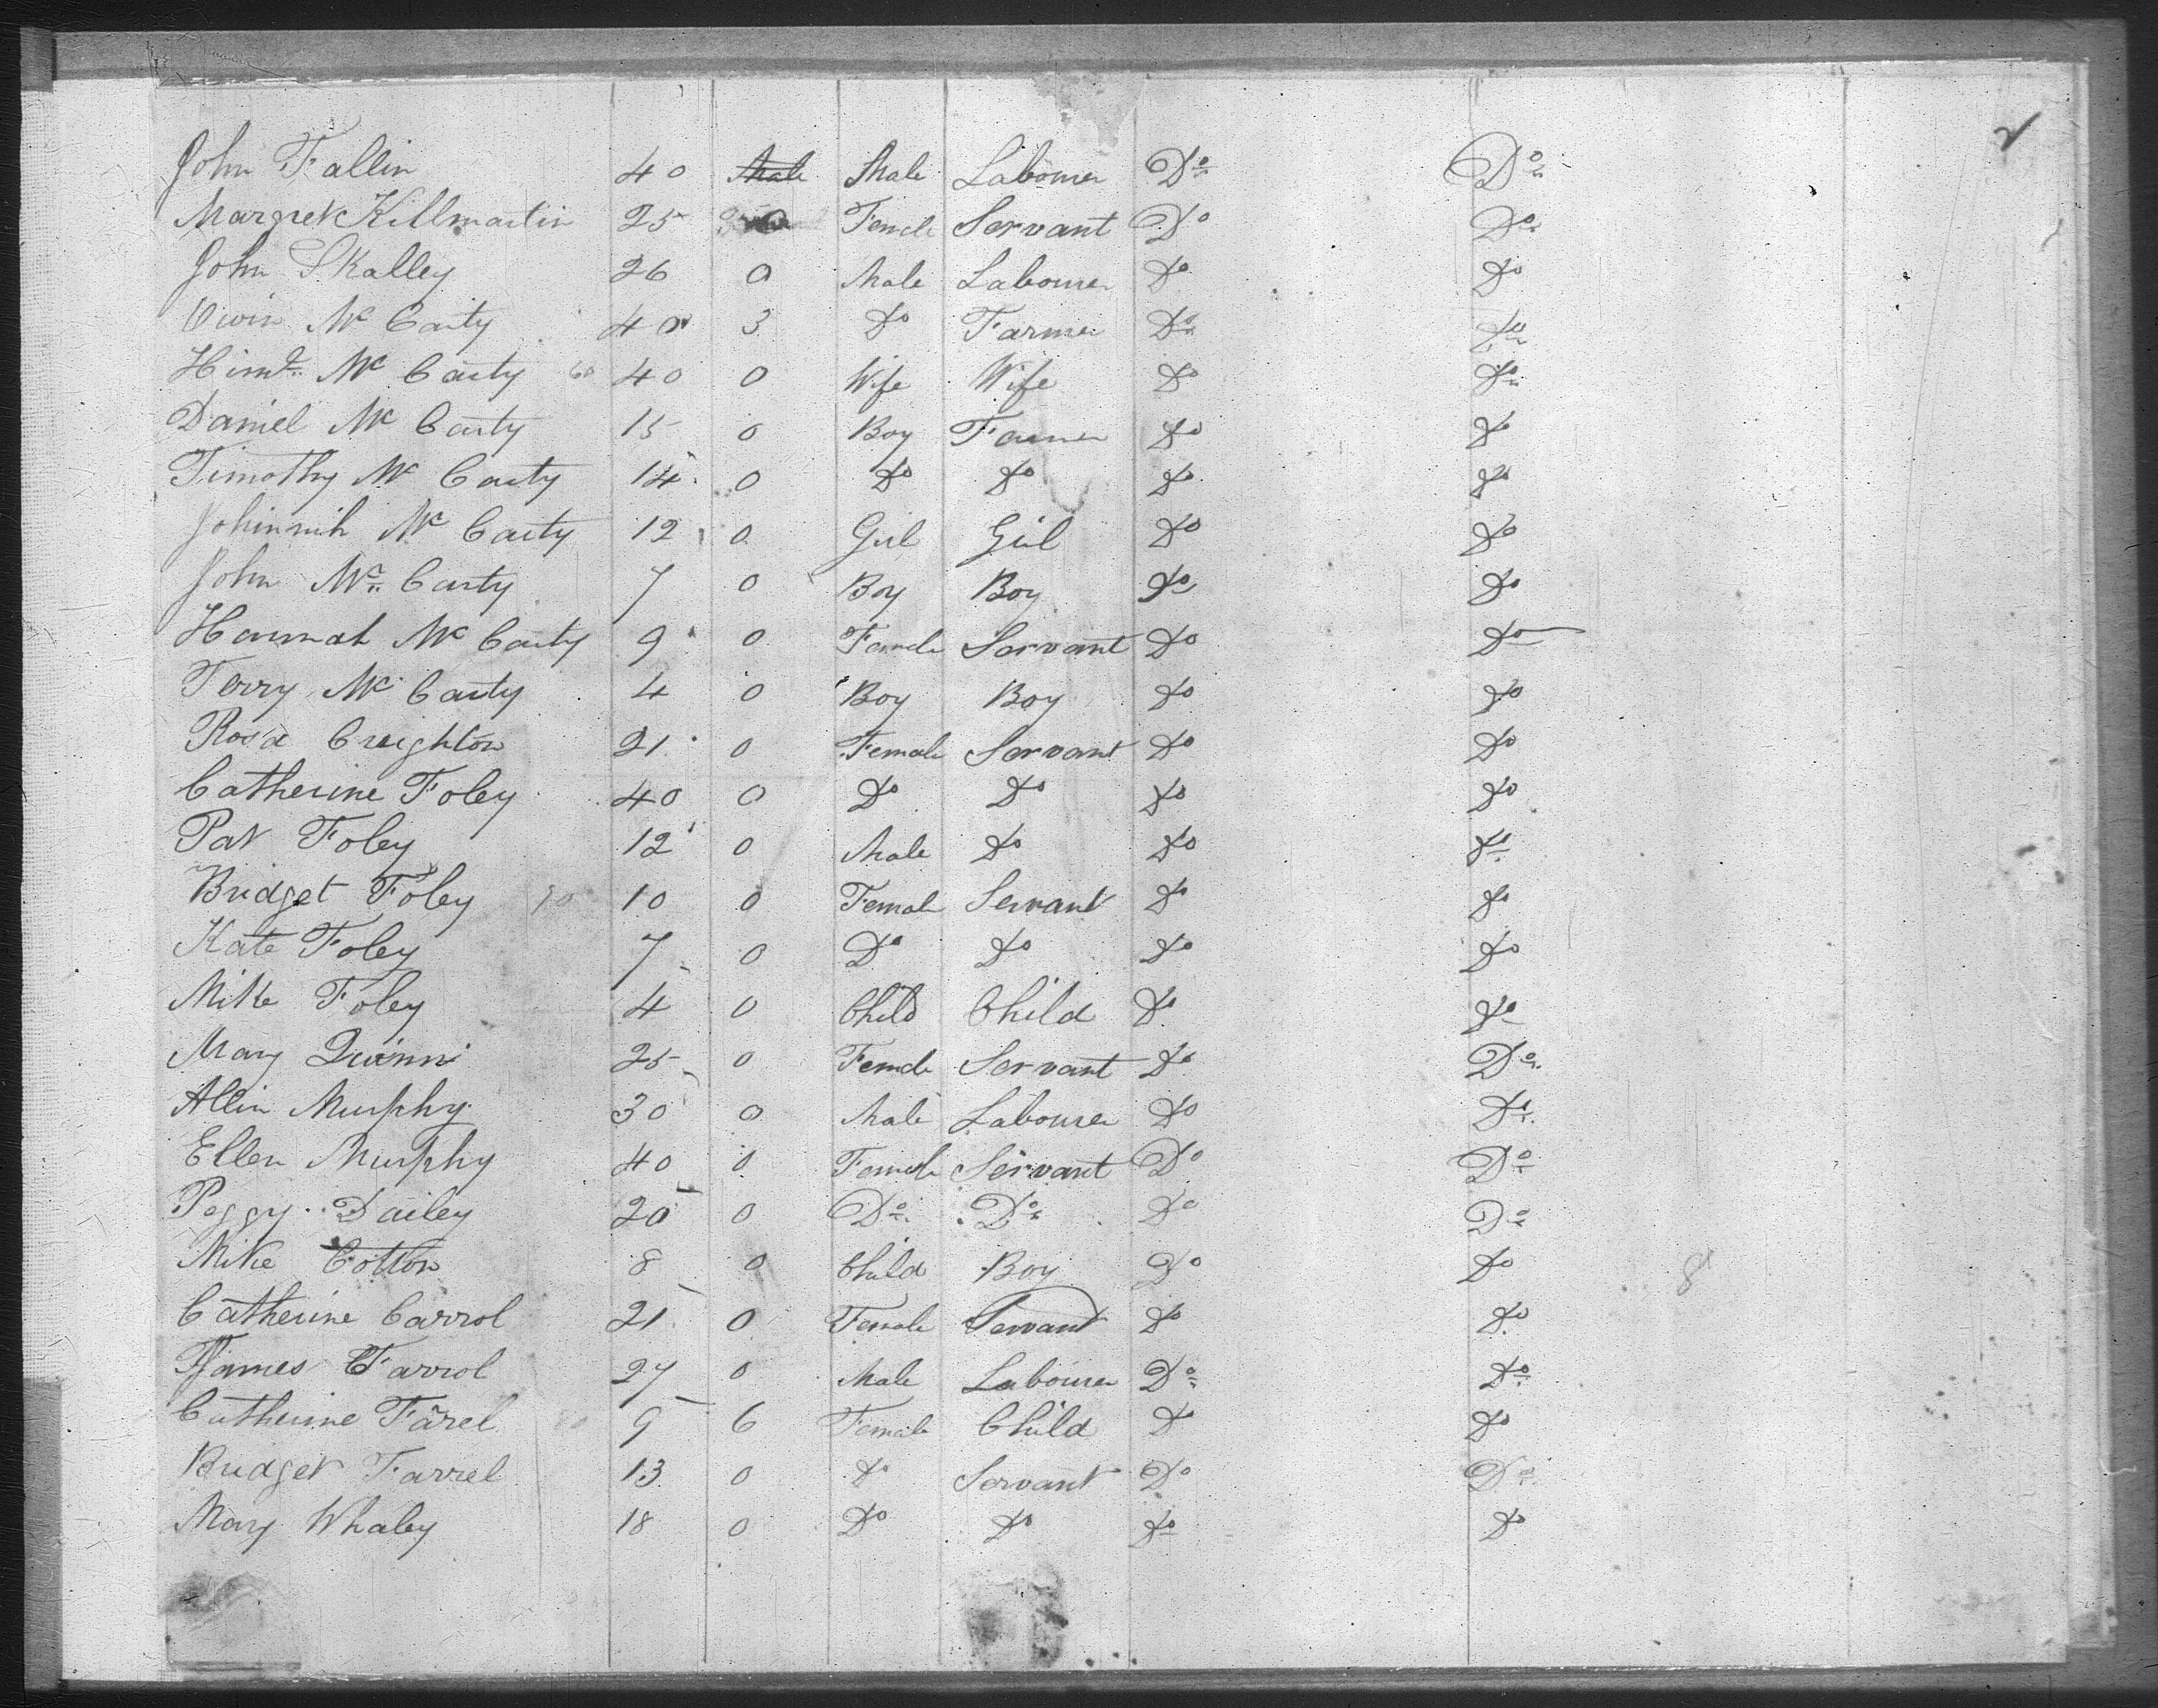 John Fallin 40 Male Male Labourer Do Do
Margret Killmartin 25 0 Female Servant Do Do
John Skalley 26 0 Male Labourer Do Do
Owin Mc Carty 40 3 Do Farmer Do Do
Mc Carty 60 40 0 Wife Wife Do Do
Daniel Mc Carty 15 0 Boy Farmer Do Do
Timothy Mc Carty 14 0 Do Do Do Do
Johinnih Mc Carty 12 0 Girl Girl Do Do
John Mc Carty 7 0 Boy Boy Do Do
Hannah Mc Carty 9 0 Female Servant Do Do
Terry Mc Carty 4 0 Boy Boy Do Do
Rosa Creighton 21 0 Female Servant Do Do
Catherine Foley 40 0 Do Do Do Do
Pat Foley 12 0 Male Do Do Do
Bridget Foley 10 10 0 Female Servant Do Do
Kate Foley 7 0 Do Do Do Do
Mike Foley 4 0 Child Child Do Do
Mary Quinn 25 0 Female Servant Do Do
Allin Murphy 30 0 Male Labourer Do Do
Ellen Murphy 40 0 Female Servant Do Do
Peggy Dailey 20 0 Do Do Do Do
Mike Cotton 8 0 Child Boy Do Do 8
Catherine Carrol 21 0 Female Servant Do Do
James Farrol 27 0 Male Labourer Do Do
Catherine Farel 9 6 Female Child Do Do
Bridget Farrel 13 0 Do Servant Do Do
Mary Whaley 18 0 Do Do Do Do